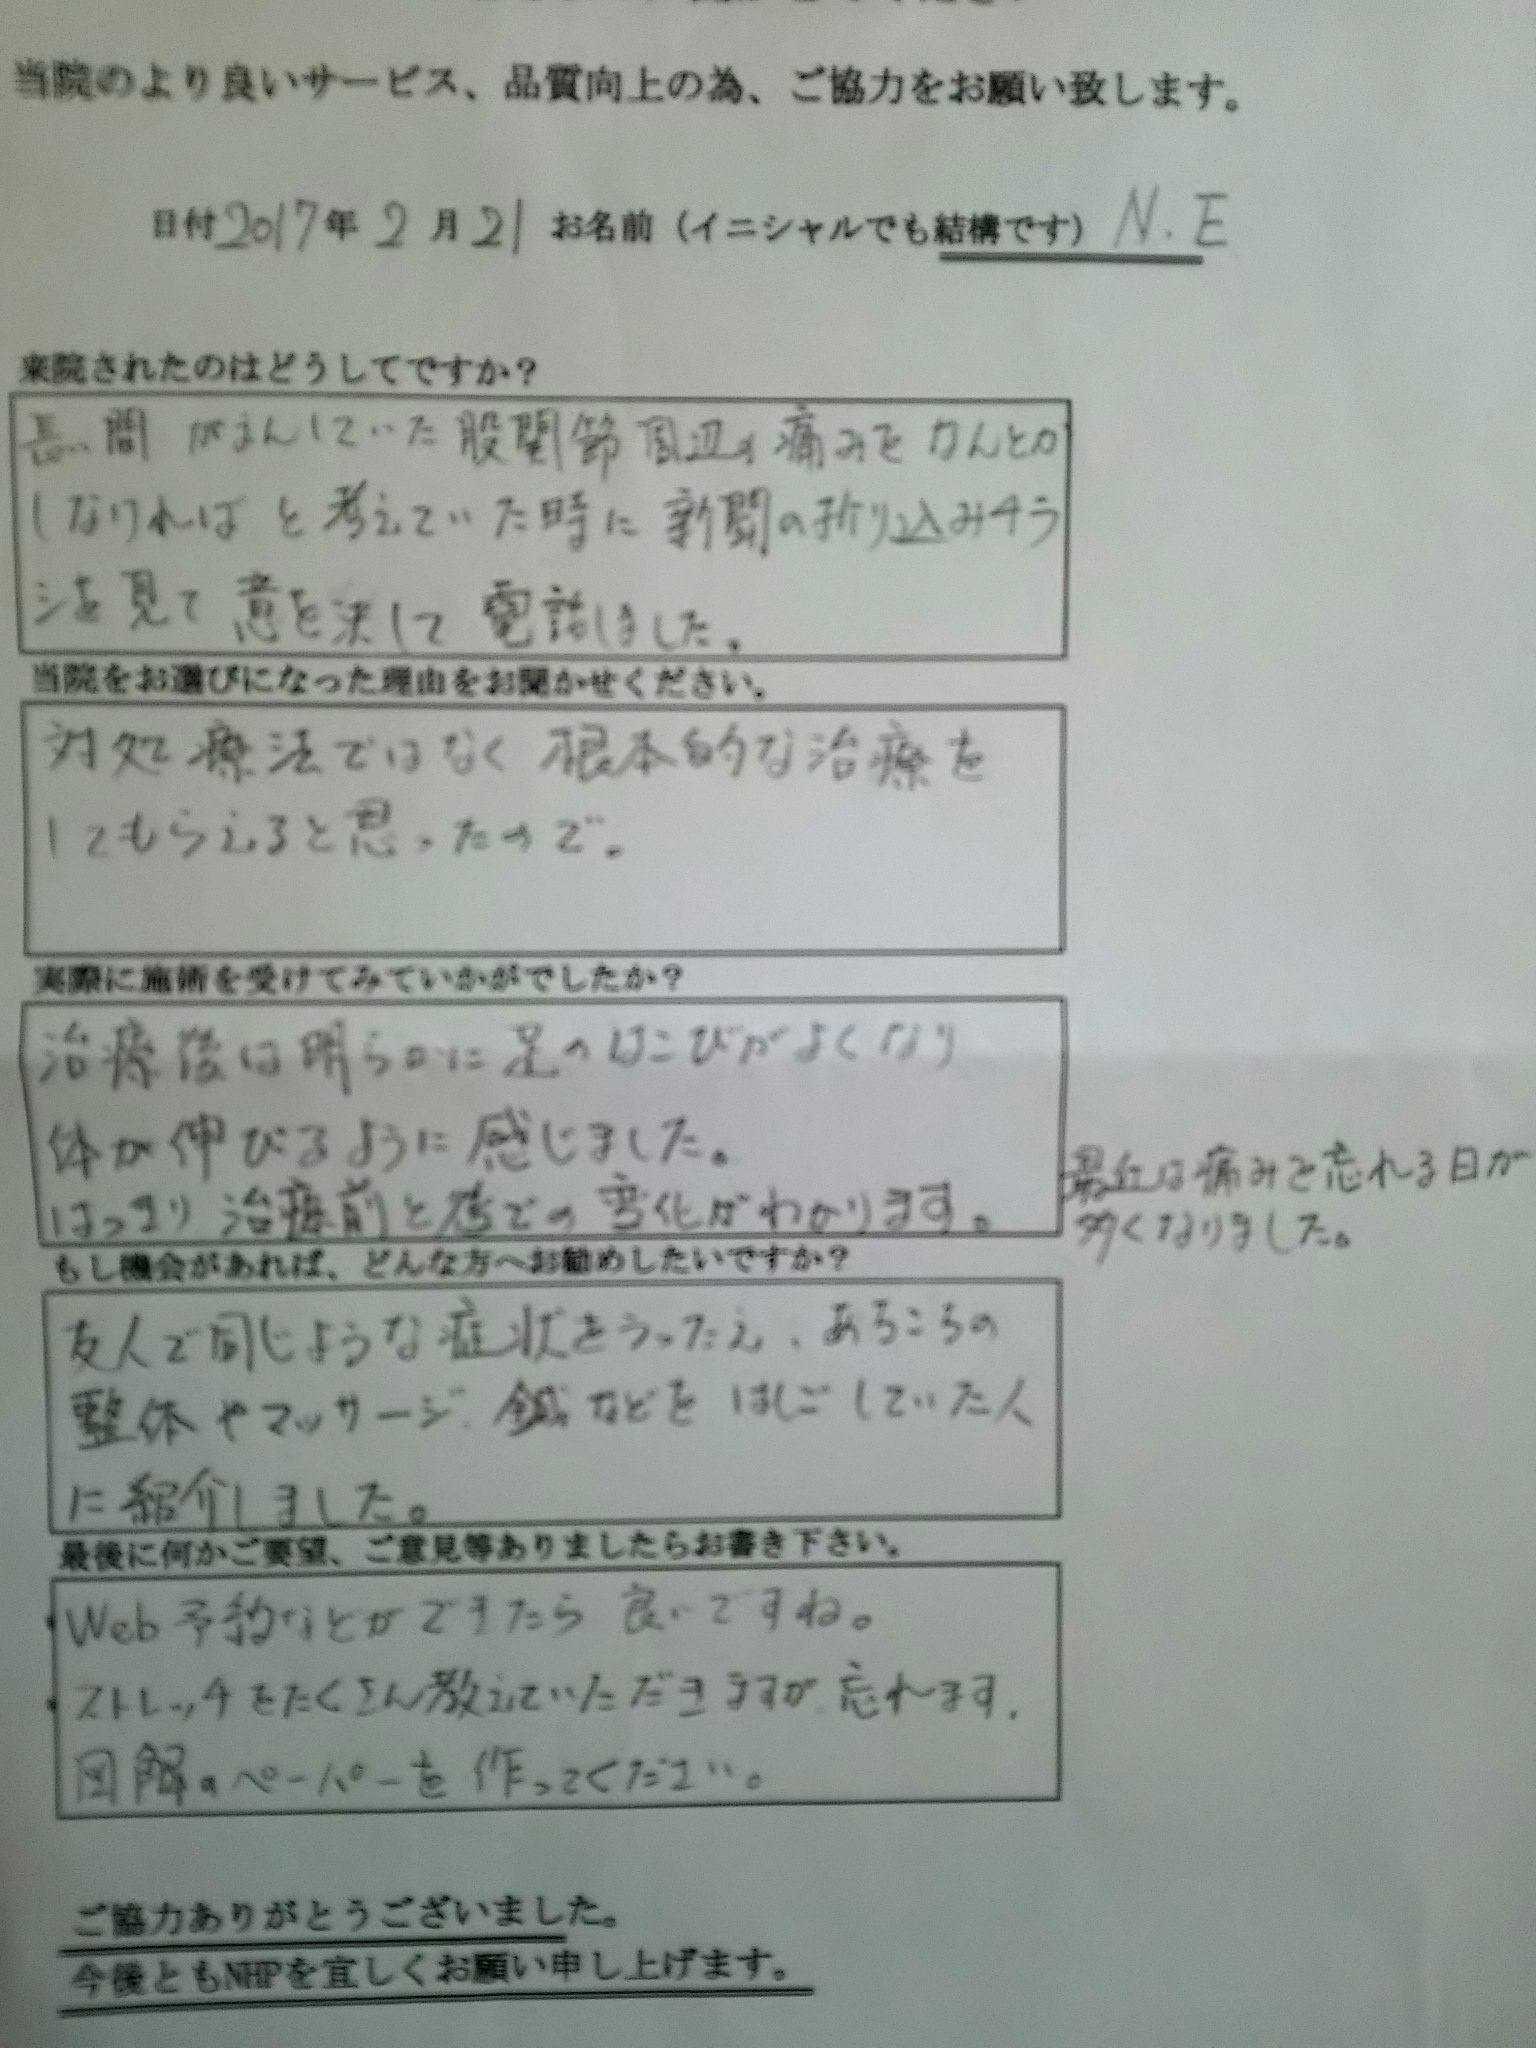 当院のより良いサービス、品質向上の為、ご協力をお願い致します。
日付2017年 2 月 21 お名前（イニシャルでも結構です） N.E
来院されたのはどうしてですか？
長い間 がまんしていた股関節周辺の痛みをなんとか
しなければ と考えていた時に 新聞の折り込みチラ
シを見て 意を決して 電話しました。
当院をお選びになった理由をお聞かせください。
対処療法ではなく 根本的な治療を
してもらえると思ったので。
実際に施術を受けてみていかがでしたか？
治療後は明らかに足のはこびがよくなり
体が伸びるように感じました。
はっきり 治療前と後での 変化がわかります。
最近は痛みを忘れる日が
多くなりました。
もし機会があれば、どんな方へお勧めしたいですか？
友人で同じような症状をうったえ、あちこちの
整体やマッサージ、鍼などを はしごしていた人
に紹介しました。
最後に何かご要望、ご意見等ありましたらお書き下さい。
・Web予約などができたら 良いですね。
・ストレッチをたくさん教えていただきますが、忘れます。
図解のペーパーを 作ってください。
ご協力ありがとうございました。
今後ともNHPを宜しくお願い申し上げます。